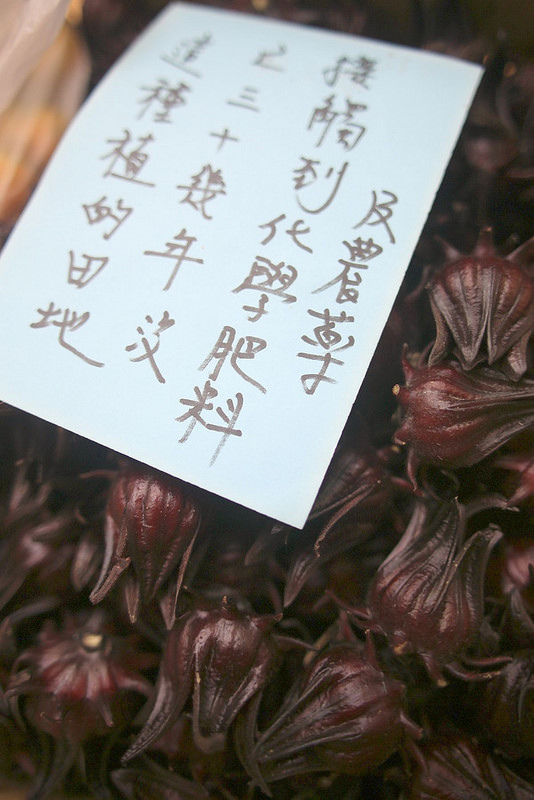 這種植的田地
已三十幾年沒
接觸到化學肥料
及農藥